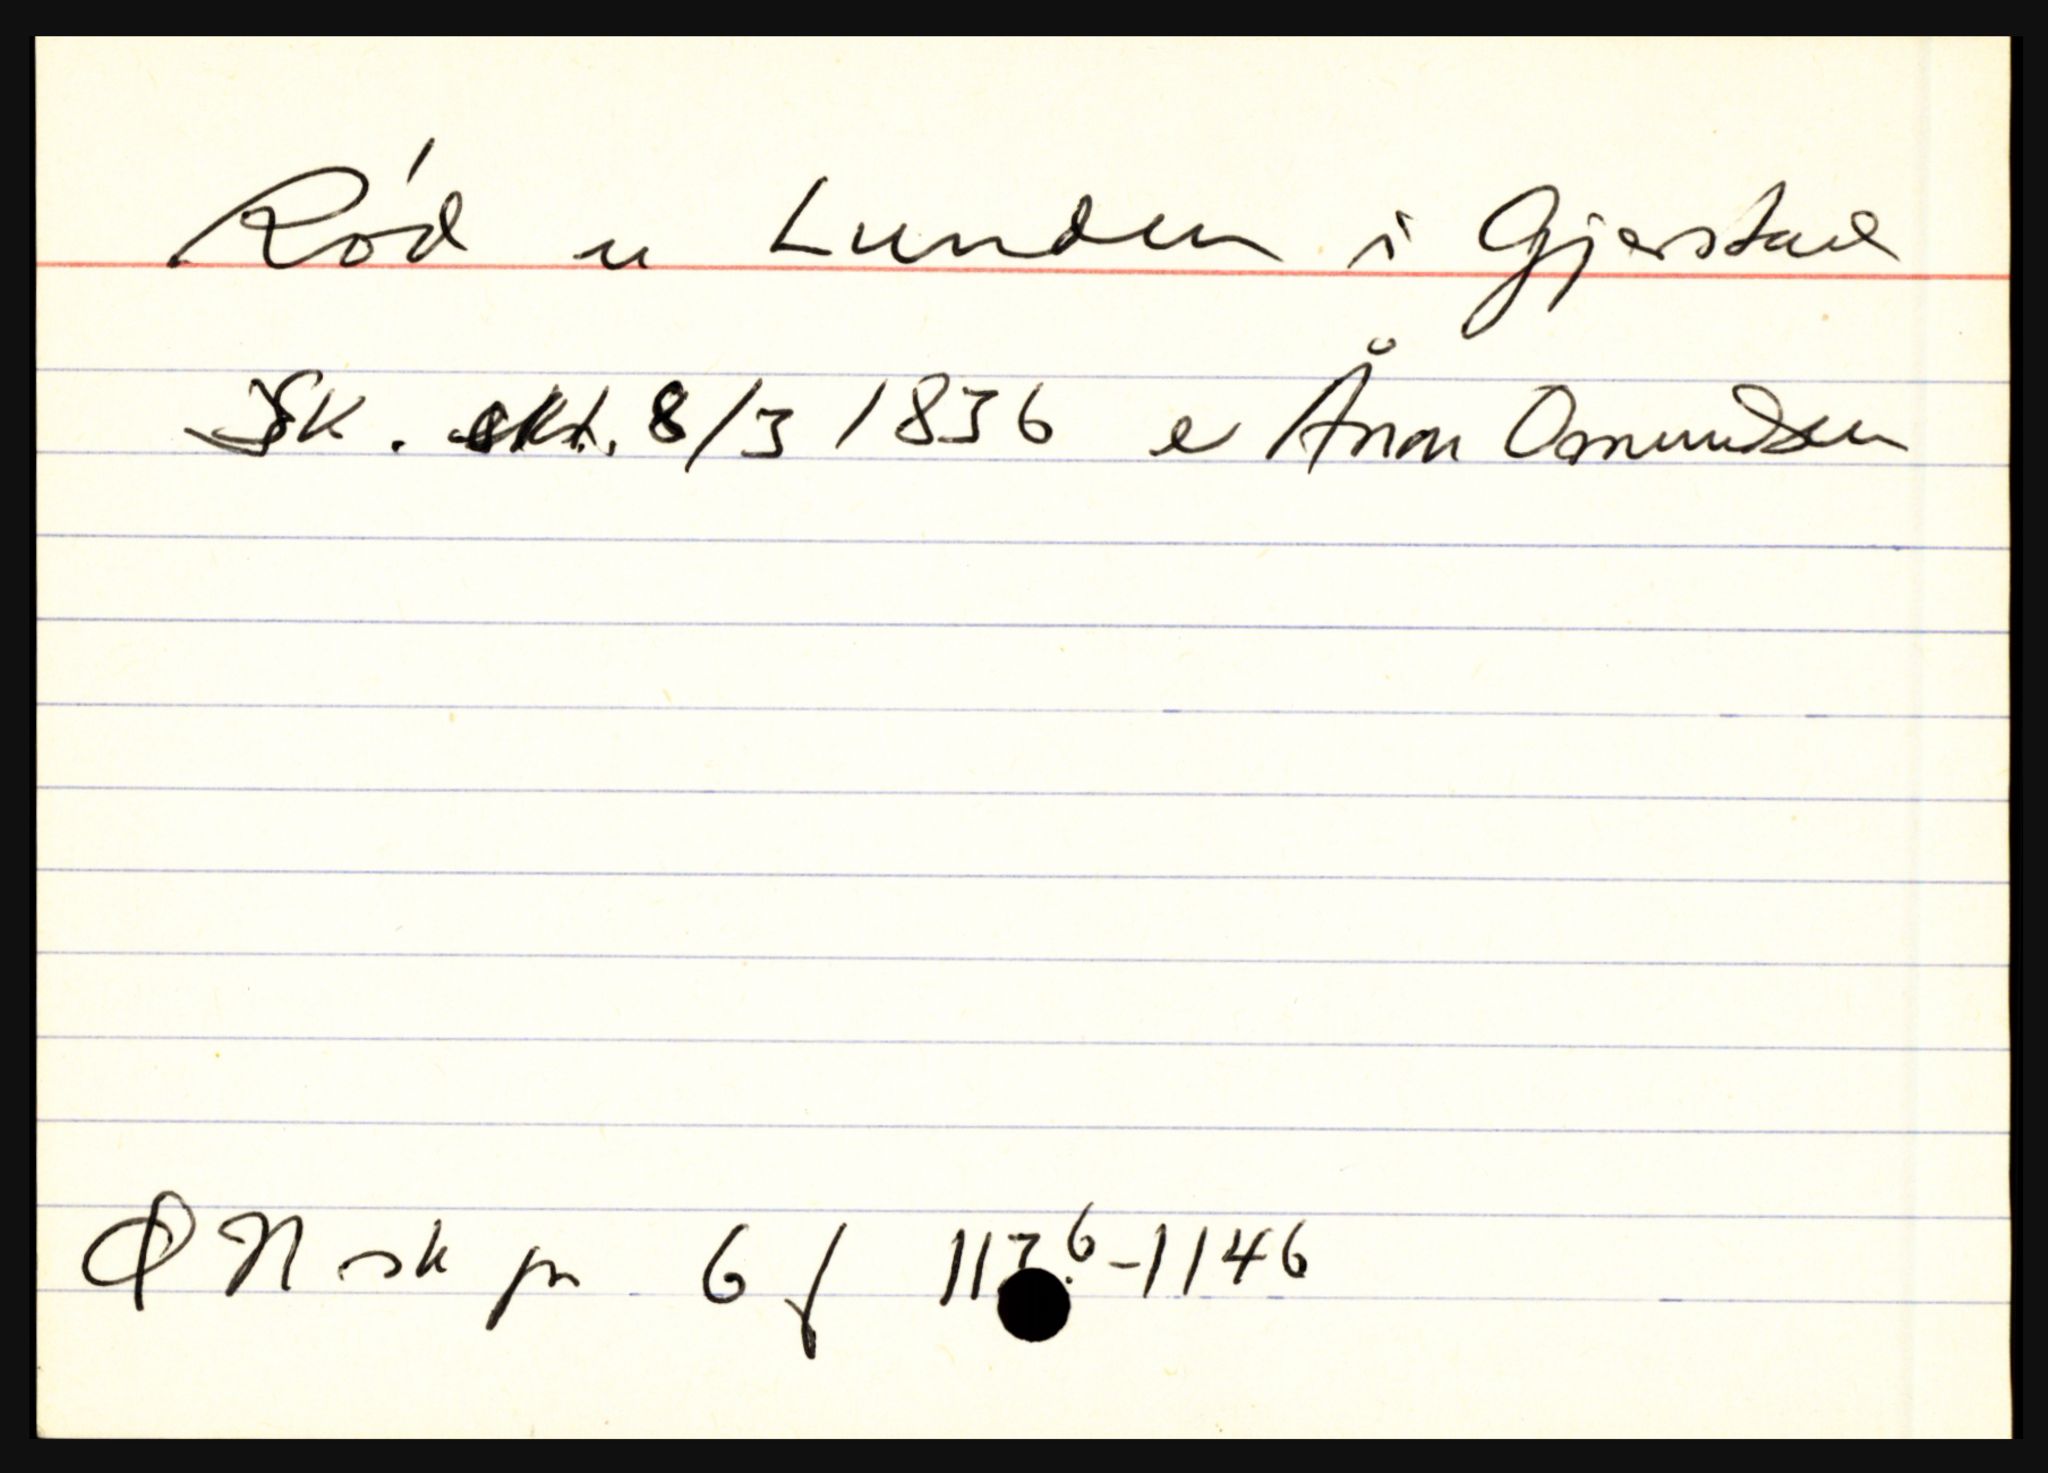 Ród u Lunden i Gjerstad
Sk. skt. 8/3 1836 e Ånon Osmundsen
ØN sk pr 6 f 1136-1146